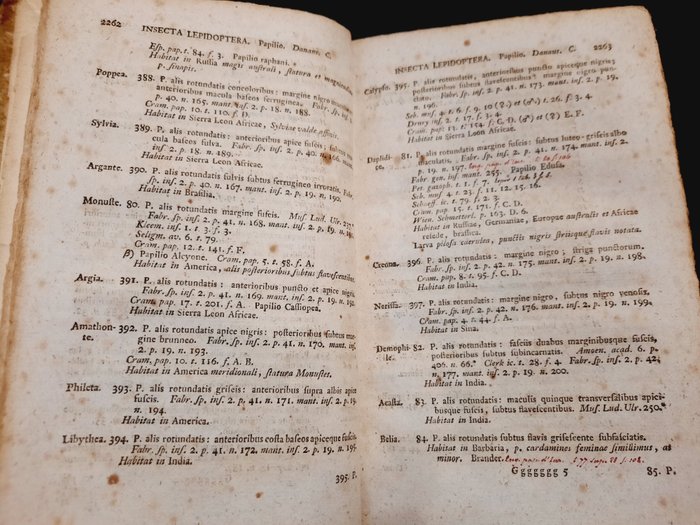 2262
INSECTA LEPIDOPTERA. Papilio. Danaus. C.
Esp. pap. t. 84. f. 3. Papilio raphani.
Habitat in Russia magis australi, statura et magnitudine
p. sinapis.
Poppea. 388. P. alis rotundatis concoloribus: margine nigro
anterioribus macula baseos ferruginea. Fabr. sp. ins.
p. 40. n. 165. mant. ins. 2. p. 18. n. 188.
Cram. pap. 10. t. 110. f. D.
Habitat in Sierra Leon Africae, Sylviae valde affinis.
Sylvia. 389. P. alis rotundatis: anterioribus apice fuscis:
cula baseos fulva. Fabr. sp. ins. 2. p. 40. n. 166. mant.
ins. 2. p. 18. n. 189.
Habitat in Sierra Leon Africae.
Argante. 390. P. alis rotundatis fulvis subtus ferrugineo irroratis. Fabr.
sp. ins. 2. p. 40. n. 167. mant. ins. 2. p. 19. n. 190.
Habitat in Brasilia.
Monuste. 80. P. alis rotundatis margine fuscis. Mus. Lud. Ulr. 237.
Fabr. sp. ins. 2. p. 41. n. 168. mant. ins. 2. p. 19. n.
Kleem. ins. 1. t. 3. f. 3.
Seligm. av. 6. t. 79.
Cram. pap. 12. t. 141. f. F.
β) Papilio Alcyone. Cram. pap. 5. t. 58. f. A.
Habitat in America, alis posterioribus subtus flavescentibus.
Argia. 391. P. alis rotundatis: anterioribus puncto et apice nigris.
Fabr. sp. ins. 2. p. 41. n. 169. mant. ins. 2. p. 19. n.
Cram. pap. 17. t. 201. f. A. Papilio Cassiopea.
Habitat in Sierra Leon Africae.
Amathon- 392. P. alis rotundatis apice nigris: posterioribus subtus mar-
te. gine brunneo. Fabr. sp. ins. 2. p. 41. n. 170. mant. ins.
2. p. 19. n. 193.
Cram. pap. 10. t. 116. f. A. B.
Habitat in America meridionali, statura Monustes.
Phileta. 393. P. alis rotundatis griseis: anterioribus supra albis apice
fuscis. Fabr. sp. ins. 2. p. 41. n. 171. mant. ins. 2. p. 19.
n. 194.
Habitat in America.
Libythea. 394. P. alis rotundatis: anterioribus costa baseos apiceque fuscis.
Fabr. sp. ins. 2. p. 41. n. 172. mant. ins. 2. p. 19. n. 195.
Habitat in India.
395. P.
INSECTA LEPIDOPTERA. Papilio. Danaus. C. 2263
Calypso. 395. P. alis rotundatis, anterioribus puncto apiceque nigris:
posterioribus subtus flavescentibus: margine nigro pun-
ctato. Fabr. sp. ins. 2. p. 41. n. 173. mant. ins. 2. p. 19.
n. 196.
Seb. mus. 4. t. 6. f. 9. 10 (♀) et (♂). t. 26. f. 3. 4.
Drury ins. 2. t. 17. f. 3. 4.
Cram. pap. 13. t. 154. f. C. D. (♂) et (♀) E. F.
Habitat in Sierra Leon Africae.
Daplidi- 81. P. alis rotundatis margine fuscis: subtus luteo-griseis albo
ce. maculatis. Fabr. sp. ins. 2. p. 41. n. 174. mant. ins. 2.
p. 19. n. 197.
Fabr. gen. ins. mant. 255. Papilio Edusa.
Pet. gazoph. t. 1. f. 7.
Seb. mus. 4. t. 23. f. 11. 12. 15. 16.
Schaeff. ic. t. 79. f. 2. 3.
Cram. pap. 15. t. 171. f. C. D.
Wien. Schmetterl. p. 163. D. 6.
Habitat in Russiae, Germaniae, Europae australis et Africae
reseda, brassica.
Larva pilosa coerulea, punctis nigris striisque flavis notata.
Creona. 396. P. alis rotundatis: margine nigro; striga punctorum.
Fabr. sp. ins. 2. p. 42. n. 175. mant. ins. 2. p. 19. n. 198.
Cram. pap. 8. t. 95. f. C. D.
Habitat in America.
Nerissa. 397. P. alis rotundatis: margine nigro, subtus nigro venosis.
Fabr. sp. ins. 2. p. 42. n. 176. mant. ins. 2. p. 19. n. 199.
Cram. pap. 4. t. 44. f. A.
Habitat in Sina.
Demophi- 82. P. alis rotundatis: fasciis duabus marginibusque fuscis,
le. posterioribus subtus subincarnatis. Amoen. acad. 6. p.
406. n. 66. Clerk ic. t. 28. f. 4. Fabr. sp. ins. 2. p. 42.
n. 177. mant. ins. 2. p. 19. n. 200.
Habitat in India.
Acasta. 83. P. alis rotundatis: maculis quinque transversalibus apici-
busque fuscis, subtus flavescentibus. Mus. Lud. Ulr. 250.
Habitat in India.
Belia. 84. P. alis rotundatis subtus flavis grisescente subfasciatis.
Habitat in Barbaria, p. cardamines feminae simillimus, at
minor. Brander.
Ggggggg 5 85. P.